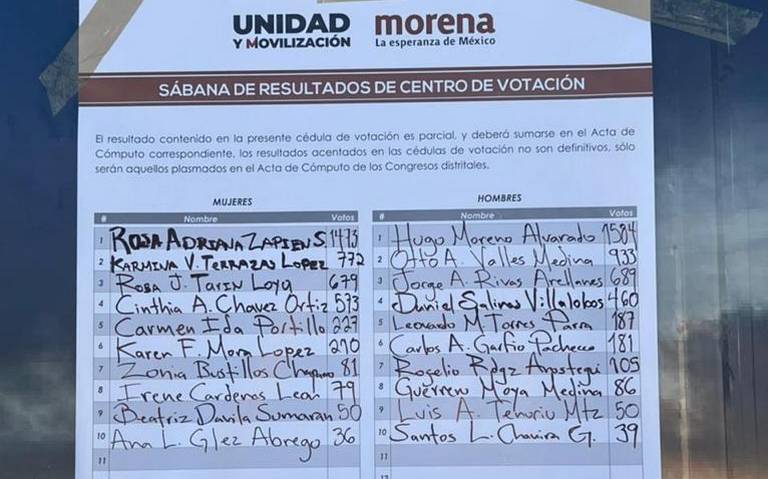 UNIDAD
Y MOVILIZACIÓN
morena
La esperanza de México
SÁBANA DE RESULTADOS DE CENTRO DE VOTACIÓN
El resultado contenido en la presente cédula de votación es parcial, y deberá sumarse en el Acta de
Cómputo correspondiente, los resultados acentados en las cédulas de votación no son definitivos, sólo
serán aquellos plasmados en el Acta de Cómputo de los Congresos distritales.
MUJERES
# Nombre Votos
1 ROSA ADRIANA ZAPIEN S 1473
2 KARMINA V. TERRAZAS LOPEZ 772
3 ROSA J. TARIN LOYA 679
4 Cinthia A. Chavez Ortiz 573
5 Carmen Ida Portillo
6 Karen F. Mora Lopez 270
7 Zonia Bustillos 81
8 Irene Cardenas Leal 79
9 Beatriz Davila Sumaran 50
10 Ana L. Glez Abrego 36
11
HOMBRES
# Nombre Votos
1 Hugo Moreno Alvarado 1584
2 Otto A. Valles Medina 933
3 Jorge A. Rivas Arellanes 689
4 Daniel Salinas Villalobos 460
5 Leonardo M. Torres Parra 187
6 Carlos A. Garfio Pacheco 181
7 Rogelio Rdgz Anostegui 105
8 Guerrero Moya Medina 86
9 Luis A. Tenorio Mtz 50
10 Santos L. Chavira G. 39
11